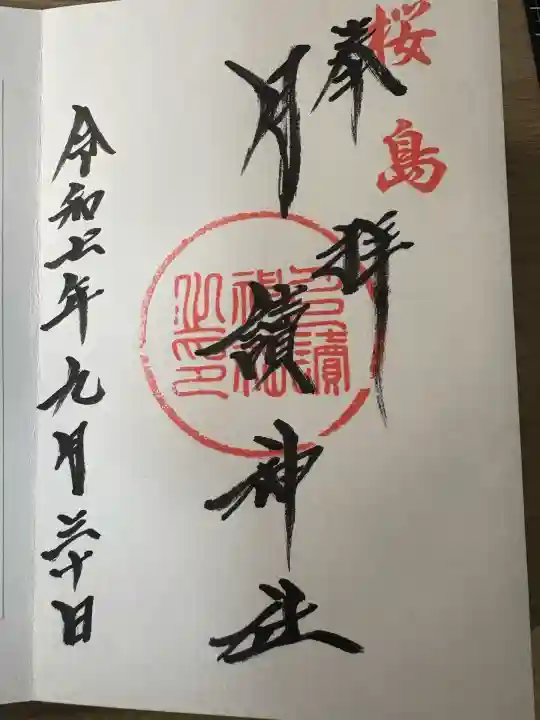 桜島
奉拝
月讀神社
月讀
神社
之印
令和 年九月三十日